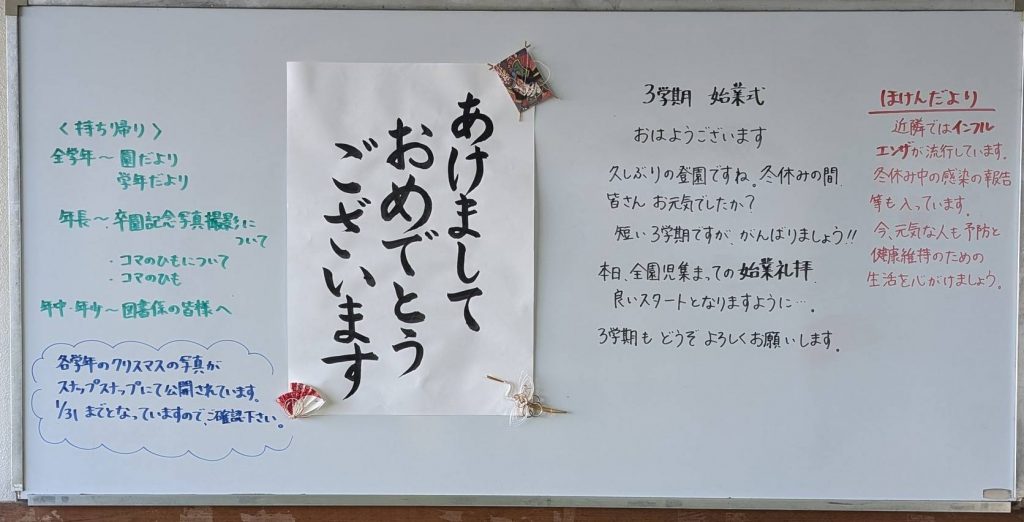 〈持ち帰り〉
全学年～園だより
学年だより
年長～卒園記念写真撮影に
ついて
・コマのひもについて
・コマのひも
年中・年少～図書係の皆様へ
各学年のクリスマスの写真が
スナップスナップにて公開されています。
1/31までとなっていますので、ご確認下さい。
あけまして
おめでとう
ございます
3学期 始業式
おはようございます
久しぶりの登園ですね。冬休みの間、
皆さん お元気でしたか?
短い3学期ですが、がんばりましょう!!
本日、全園児集まっての始業礼拝。
良いスタートとなりますように…。
3学期も どうぞ よろしくお願いします。
ほけんだより
近隣ではインフル
エンザが流行しています。
冬休み中の感染の報告
等も入っています。
今、元気な人も予防と
健康維持のための
生活を心がけましょう。